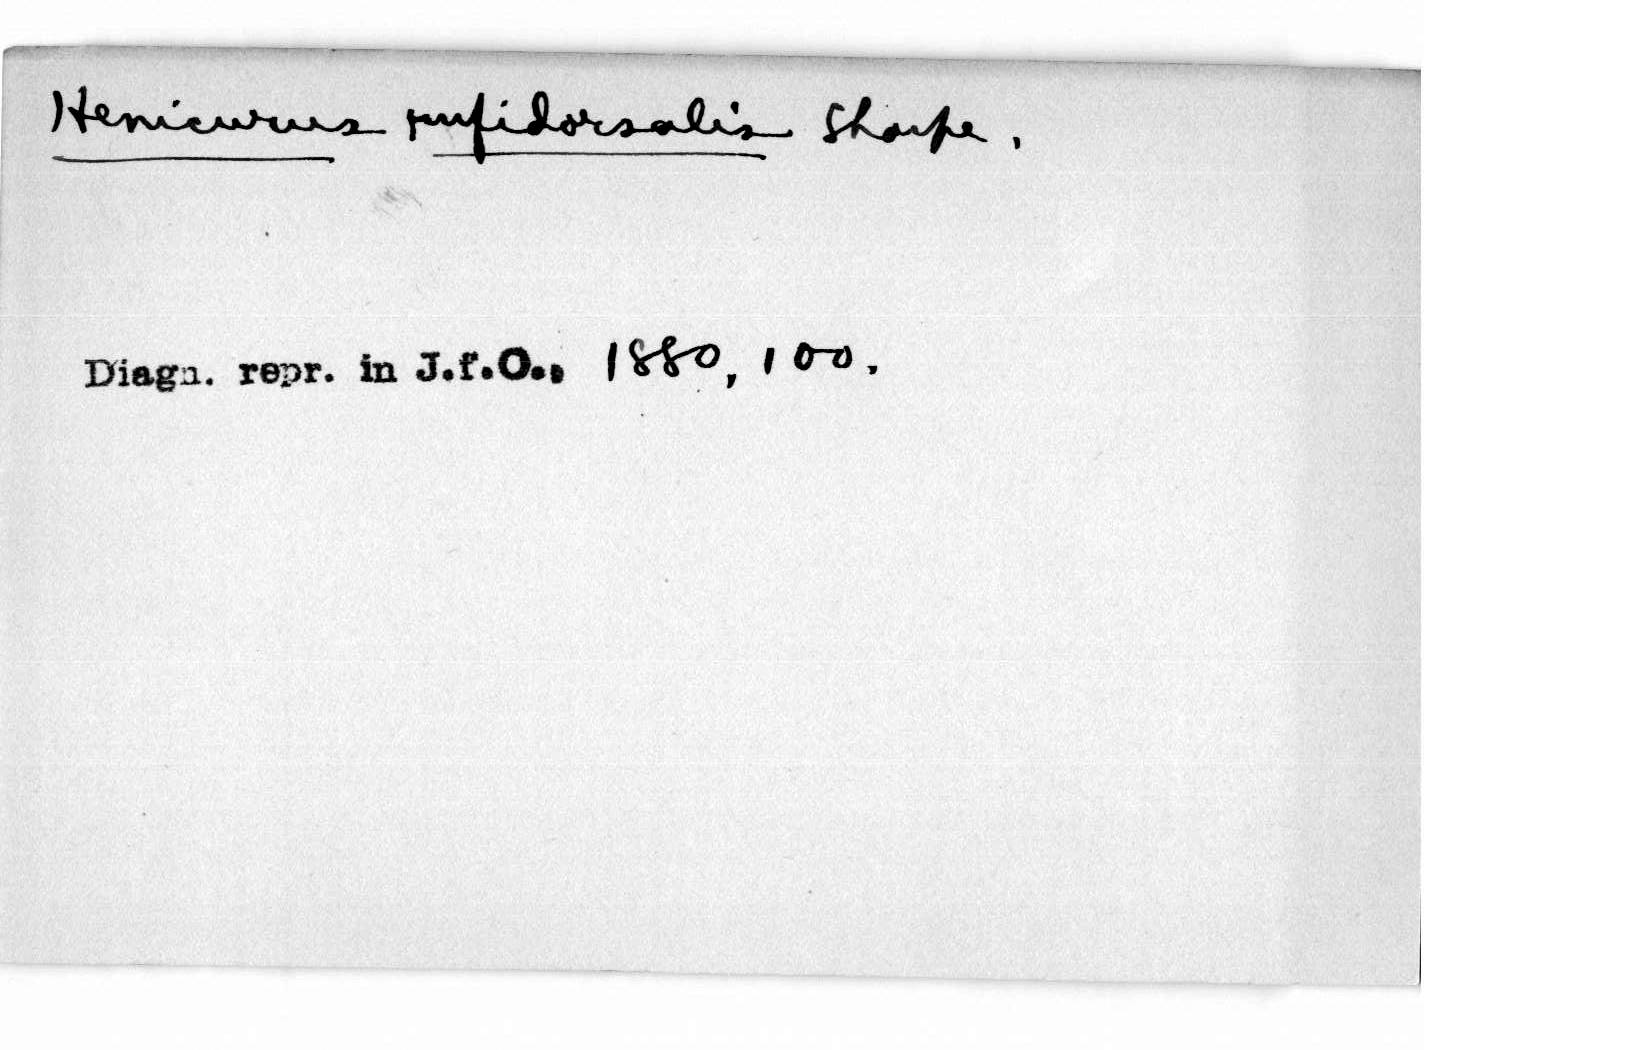 Henicurus rufidorsalis Sharpe.
Diagn. repr. in J.f.O., 1880, 100.